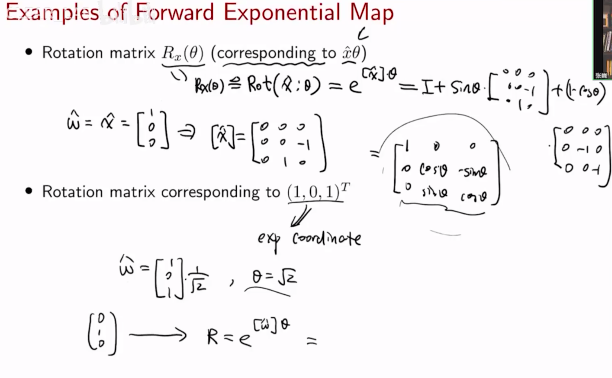 Examples of Forward Exponential Map
• Rotation matrix R_x(θ) (corresponding to x̂θ)
R_x(θ) ≜ Rot(x̂; θ) = e^{[x̂]θ} = I + sinθ · [0 0 0; 0 0 -1; 0 1 0] + (1-cosθ) · [0 0 0; 0 -1 0; 0 0 -1]
ω̂ = x̂ = [1; 0; 0] ⇒ [x̂] = [0 0 0; 0 0 -1; 0 1 0]
= [1 0 0; 0 cosθ -sinθ; 0 sinθ cosθ]
• Rotation matrix corresponding to (1, 0, 1)^T
exp coordinate
ω̂ = [1; 0; 1] · 1/√2 , θ = √2
(0; 1; 0) ⟶ R = e^{[ω̂]θ} =